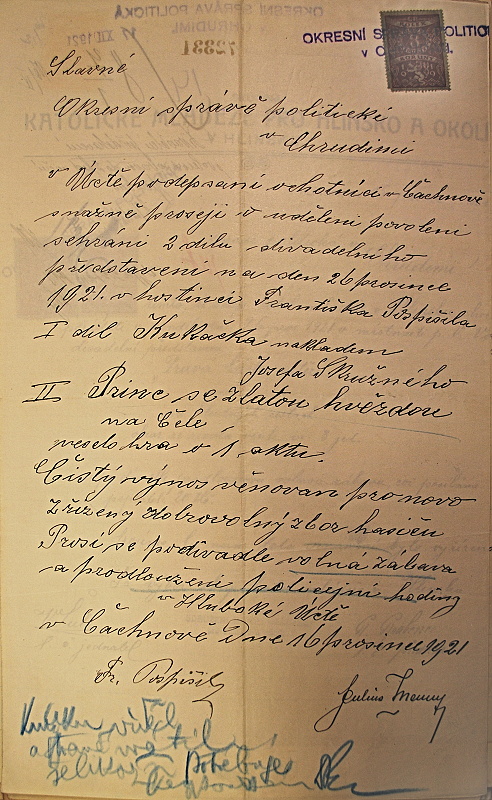 OKRESNÍ SPRÁVA POLITICKÁ
72331
OKRESNÍ S POLITIC
v
Slavné
Okresní správě politickí
v Chrudimi
v Úctě podepsaní ochotníci v Čachnově
snažně prosejí o udělení povolení
sehrání 2 dílu divadelního
představení na den 26 prosince
1921. v hostinci Františka Pospíšila
I díl Kukačka nakladem
Josefa Skružného
II Princ se zlatou hvězdou
na čele,
veselohra o 1. aktu.
Čistý výnos věnovan pro novo
zřízený dobrovolný zbor hasičů
Prosí se po divadle volná zábava
a prodloužení policejní hodiny
v Hluboké Úctě
v Čachnově Dne 16 prosince 1921
Fr. Pospíšil
Julius